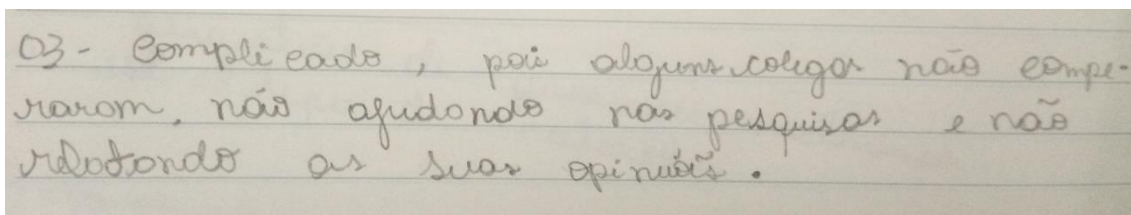 03- Complicado, poi alguns colegas não compe-
raram, não ajudando nas pesquisas e não
relatando as suas opiniões.